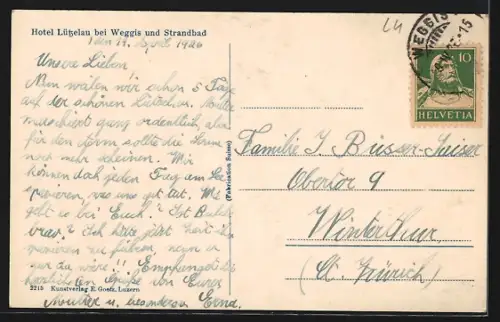 Hotel Lützelau bei Weggis und Strandbad
den 17. Sept. 1926
Unsere Lieben
Nun wären wir schon 5 Tage
auf der schönen Mutter
marschiert ganz ordentlich aber
für den sollte die Sonne
noch mehr scheinen. Wir
können doch jeden Tag am See
spazieren, was uns gut tut. Wie
geht es bei Euch? Ist
brav? Ich hätte jetzt
zu führen wenn er
nur da wäre!! Empfanget die
herzlichsten Grüße von Eurer
Mutter u. besonders Erna.
2215 Kunstverlag E. Goetz, Luzern
(Fabrication Suisse)
WEGGIS
10
HELVETIA
Familie J. Büsser-Suiser
Obertor 9
Winterthur
(Ct. Zürich)